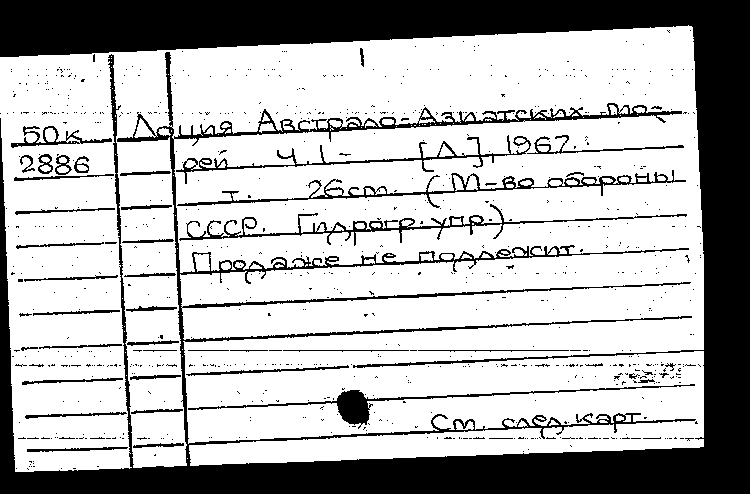 50к Лоция Австрало-Азиатских мо-
2886 рей. Ч. 1- [Л.], 1967.
т. 26см. (М-во обороны
СССР. Гидрогр. упр.).
Продаже не подлежит.
См. след. карт.